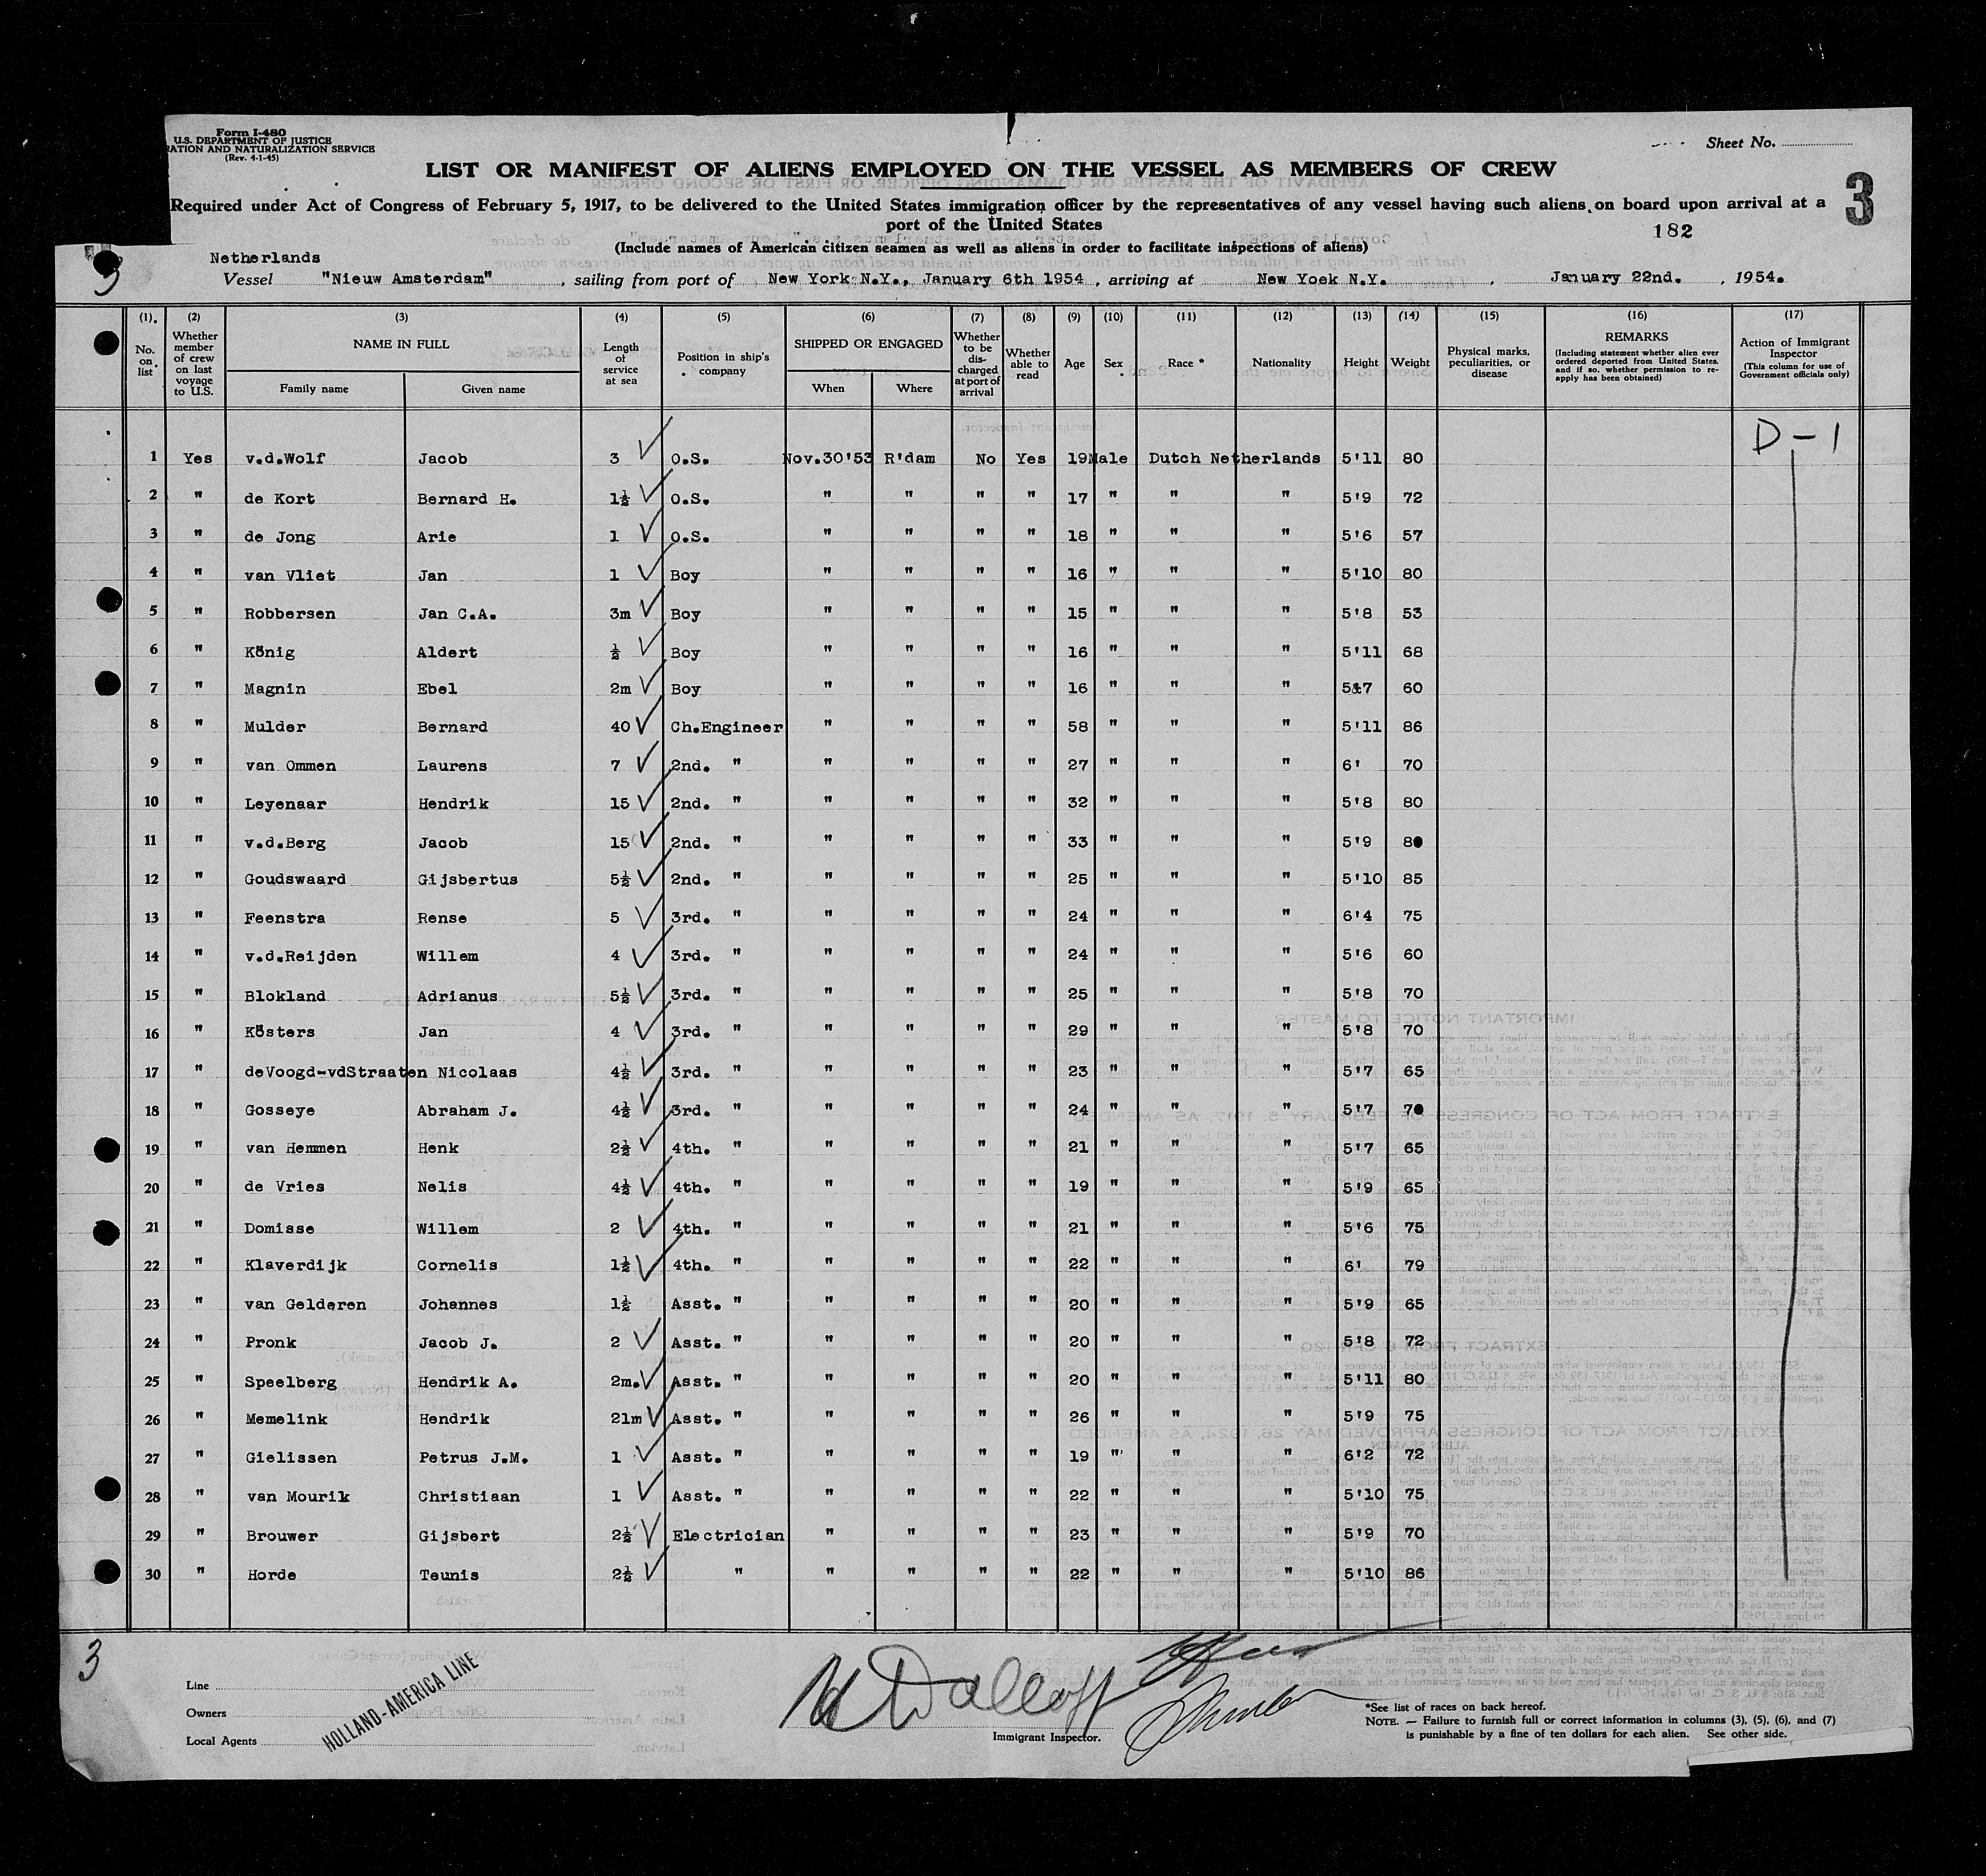 Form I-480
U.S. DEPARTMENT OF JUSTICE
RATION AND NATURALIZATION SERVICE
(Rev. 4-1-45)
Sheet No.
LIST OR MANIFEST OF ALIENS EMPLOYED ON THE VESSEL AS MEMBERS OF CREW
3
Required under Act of Congress of February 5, 1917, to be delivered to the United States immigration officer by the representatives of any vessel having such aliens on board upon arrival at a
port of the United States
182
(Include names of American citizen seamen as well as aliens in order to facilitate inspections of aliens)
3
Netherlands
Vessel "Nieuw Amsterdam", sailing from port of New York N.Y., January 6th 1954, arriving at New Yoek N.Y., January 22nd., 1954.
(1). (2) (3) (4) (5) (6) (7) (8) (9) (10) (11) (12) (13) (14) (15) (16) (17)
No. on list Whether member of crew on last voyage to U.S. NAME IN FULL Family name Given name Length of service at sea Position in ship's company SHIPPED OR ENGAGED When Where Whether to be discharged at port of arrival Whether able to read Age Sex Race * Nationality Height Weight Physical marks, peculiarities, or disease REMARKS (Including statement whether alien ever ordered deported from United States, and if so, whether permission to re-apply has been obtained) Action of Immigrant Inspector (This column for use of Government officials only)
D-1
1 Yes v.d.Wolf Jacob 3 O.S. Nov.30'53 R'dam No Yes 19 Male Dutch Netherlands 5'11 80
2 " de Kort Bernard H. 1½ O.S. " " " " 17 " " " 5'9 72
3 " de Jong Arie 1 O.S. " " " " 18 " " " 5'6 57
4 " van Vliet Jan 1 Boy " " " " 16 " " " 5'10 80
5 " Robbersen Jan C.A. 3m Boy " " " " 15 " " " 5'8 53
6 " König Aldert ½ Boy " " " " 16 " " " 5'11 68
7 " Magnin Ebel 2m Boy " " " " 16 " " " 5&7 60
8 " Mulder Bernard 40 Ch.Engineer " " " " 58 " " " 5'11 86
9 " van Ommen Laurens 7 2nd. " " " " " 27 " " " 6' 70
10 " Leyenaar Hendrik 15 2nd. " " " " " 32 " " " 5'8 80
11 " v.d.Berg Jacob 15 2nd. " " " " " 33 " " " 5'9 80
12 " Goudswaard Gijsbertus 5½ 2nd. " " " " " 25 " " " 5'10 85
13 " Feenstra Rense 5 3rd. " " " " " 24 " " " 6'4 75
14 " v.d.Reijden Willem 4 3rd. " " " " " 24 " " " 5'6 60
15 " Blokland Adrianus 5½ 3rd. " " " " " 25 " " " 5'8 70
16 " Kösters Jan 4 3rd. " " " " " 29 " " " 5'8 70
17 " deVoogd-vdStraaten Nicolaas 4½ 3rd. " " " " " 23 " " " 5'7 65
18 " Gosseye Abraham J. 4½ 3rd. " " " " " 24 " " " 5'7 70
19 " van Hemmen Henk 2½ 4th. " " " " " 21 " " " 5'7 65
20 " de Vries Nelis 4½ 4th. " " " " " 19 " " " 5'9 65
21 " Domisse Willem 2 4th. " " " " " 21 " " " 5'6 75
22 " Klaverdijk Cornelis 1½ 4th. " " " " " 22 " " " 6' 79
23 " van Gelderen Johannes 1½ Asst. " " " " " 20 " " " 5'9 65
24 " Pronk Jacob J. 2 Asst. " " " " " 20 " " " 5'8 72
25 " Speelberg Hendrik A. 2m. Asst. " " " " " 20 " " " 5'11 80
26 " Memelink Hendrik 21m Asst. " " " " " 26 " " " 5'9 75
27 " Gielissen Petrus J.M. 1 Asst. " " " " " 19 " " " 6'2 72
28 " van Mourik Christiaan 1 Asst. " " " " " 22 " " " 5'10 75
29 " Brouwer Gijsbert 2½ Electrician " " " " 23 " " " 5'9 70
30 " Horde Teunis 2½ " " " " " 22 " " " 5'10 86
3
Line
Owners
Local Agents
HOLLAND-AMERICA LINE
Immigrant Inspector.
*See list of races on back hereof.
NOTE. — Failure to furnish full or correct information in columns (3), (5), (6), and (7)
is punishable by a fine of ten dollars for each alien. See other side.